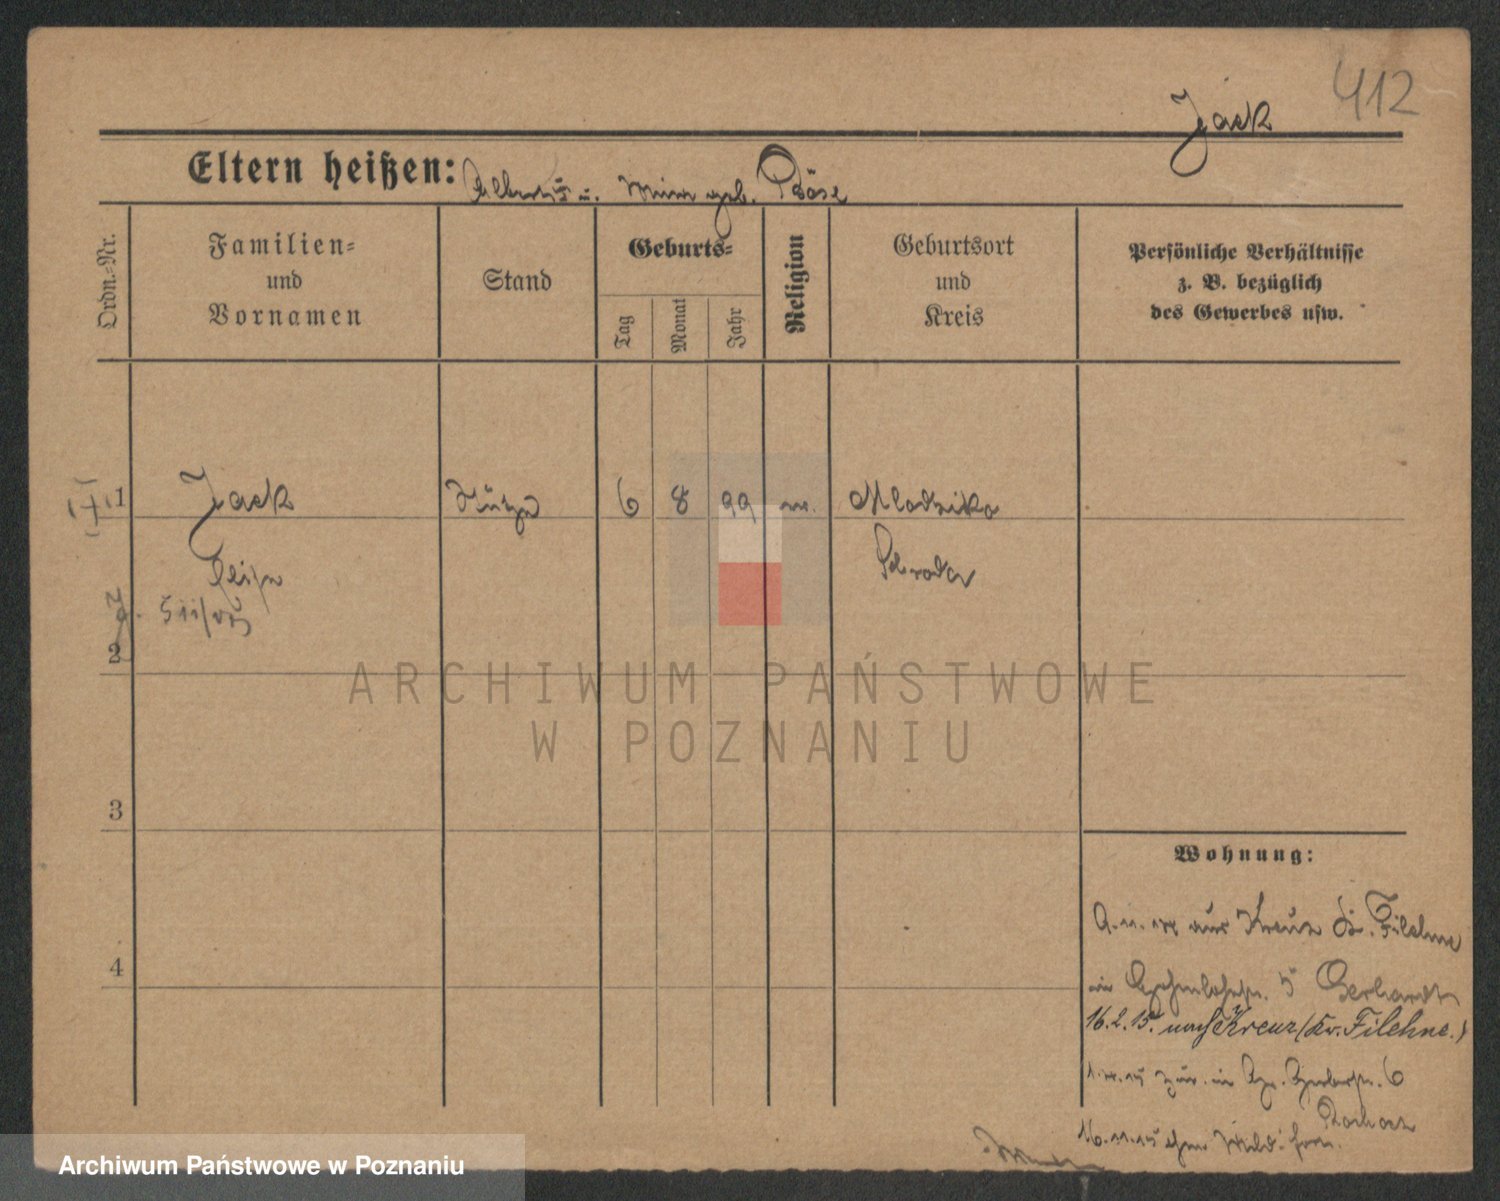 412
Jack
Eltern heißen: Albert u. Minna geb. Böse
Ordn.=Nr.
Familien=
und
Vornamen
Stand
Geburts=
Tag
Monat
Jahr
Religion
Geburtsort
und
Kreis
Persönliche Verhältnisse
z. B. bezüglich
des Gewerbes usw.
1
Jack
Stütze
6
8
99
ev.
Mlodziko
Luise
Schroda
2
3
4
Wohnung:
aus Kreuz Kr. Filehne
in 5 Gerhardt
16.2.15. nach Kreuz (Kr. Filehne.)
zur. in 6
ohne Meld. fort.
ARCHIWUM PAŃSTWOWE
W POZNANIU
Archiwum Państwowe w Poznaniu